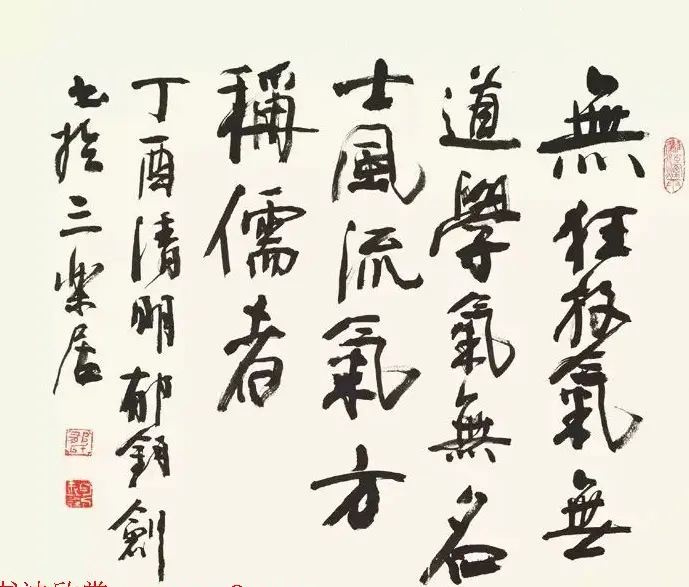 無狂放氣無
道學氣無名
士風流氣方
稱儒者
丁酉清明郁鈞劍
書於三樂居